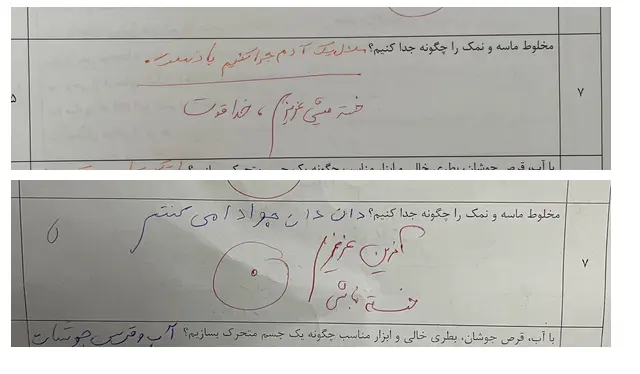 مخلوط ماسه و نمک را چگونه جدا کنیم؟ مثل یک آدم جدا کنیم با دست.
۷
خسته میشی عزیزم، خدا قوت
با آب، قرص جوشان، بطری خالی و ابزار مناسب چگونه یک جسم متحرک بسازیم؟
مخلوط ماسه و نمک را چگونه جدا کنیم؟ دان دان جدا می کنم
آفرین عزیزم
۷
خسته نباشی
با آب، قرص جوشان، بطری خالی و ابزار مناسب چگونه یک جسم متحرک بسازیم؟ آب و قرس جوشان